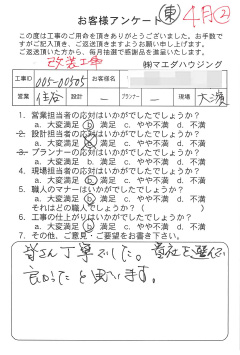 お客様アンケート 東 4月②
この度は工事のご用命を頂きありがとうございました。お手数で
すがご記入頂き、ご返送頂きますようお願い申し上げます。
ご返送頂いた方から、毎月抽選で感謝品を進呈いたします。
改装工事 ㈱マエダハウジング
工事ID 005-00505 お客様名
営業 住谷 設計 プランナー ー 現場 大濱
1. 営業担当者の応対はいかがでしたでしょうか?
a. 大変満足 b. 満足 c. やや不満 d. 不満
2. 設計担当者の応対はいかがでしたでしょうか?
a. 大変満足 b. 満足 c. やや不満 d. 不満
3. プランナーの応対はいかがでしたでしょうか?
a. 大変満足 b. 満足 c. やや不満 d. 不満
4. 現場担当者の応対はいかがでしたでしょうか?
a. 大変満足 b. 満足 c. やや不満 d. 不満
5. 職人のマナーはいかがでしたでしょうか?
a. 大変満足 b. 満足 c. やや不満 d. 不満
それはどの職人でしょうか?( )
6. 工事の仕上がりはいかがでしたでしょうか?
a. 大変満足 b. 満足 c. やや不満 d. 不満
7. その他、ご意見・ご要望をお書き下さい。
皆さん丁寧でした。貴社を選んで
良かったと思います。